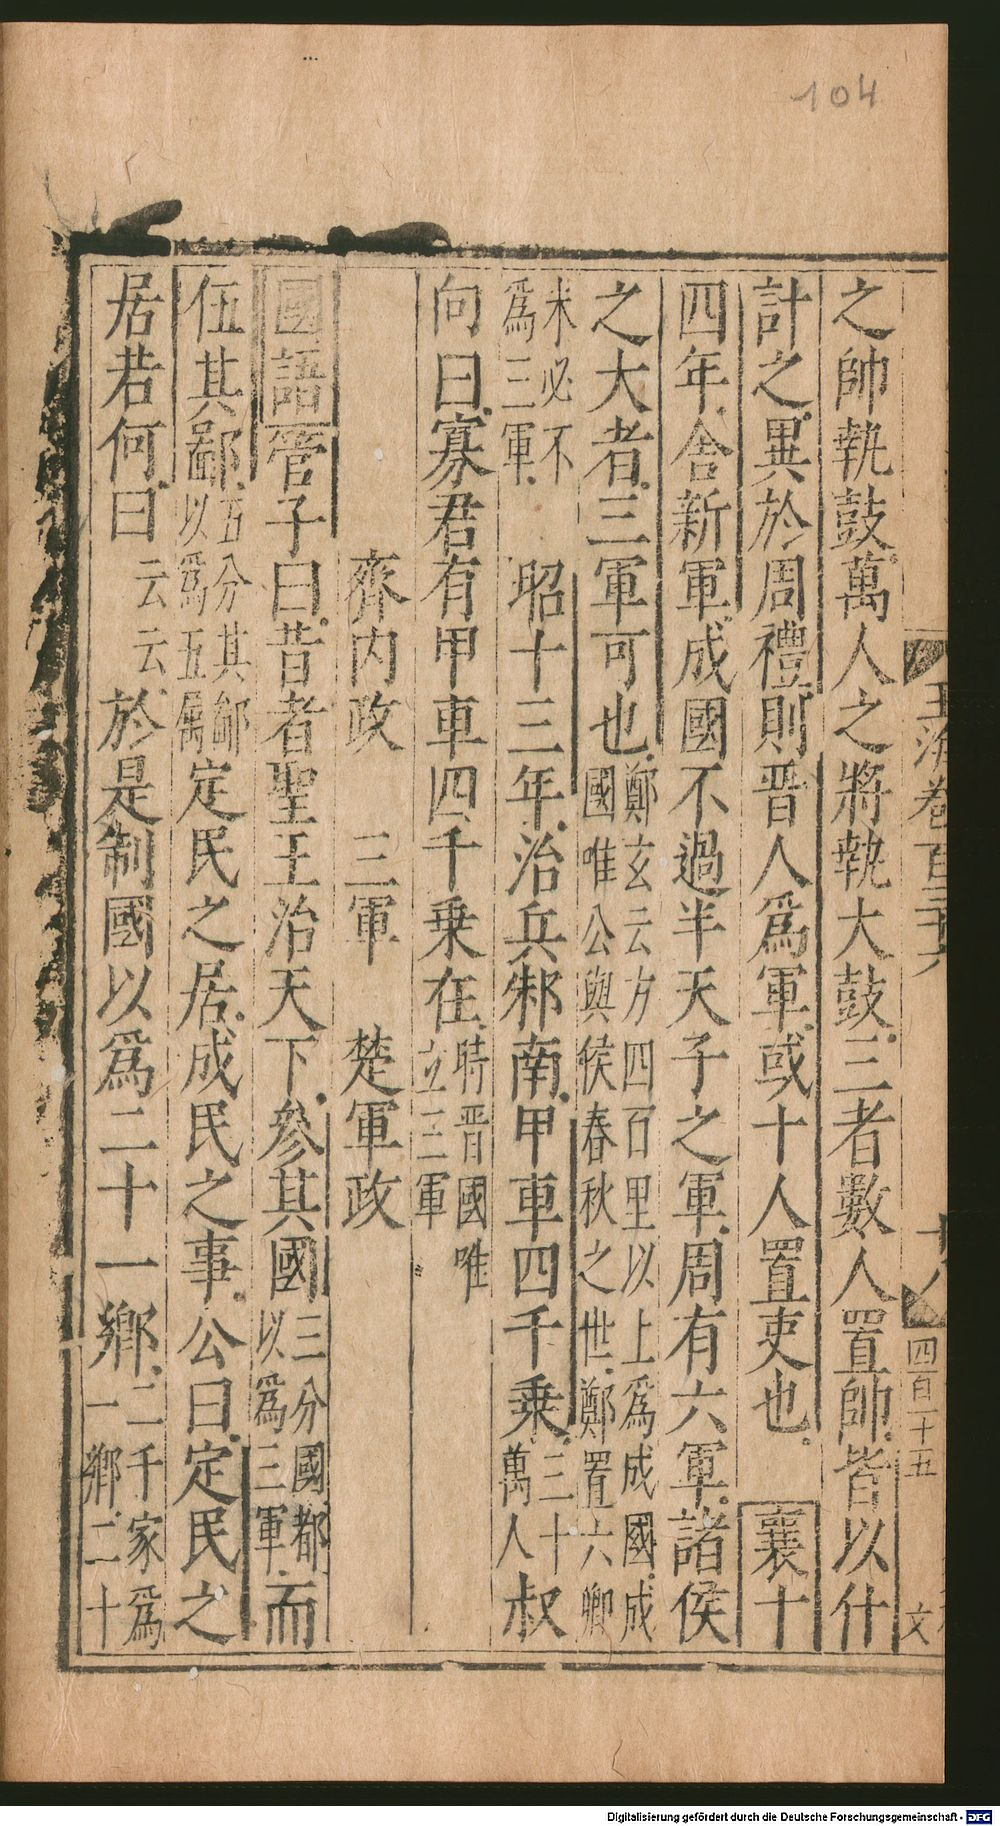 104
之帥執鼓萬人之將執大鼓三者數人置帥皆以什
計之異於周禮則晉人爲軍或十人置吏也 襄十
四年舍新軍成國不過半天子之軍周有六軍諸侯
之大者三軍可也鄭玄云方四百里以上爲成國成國唯公與侯春秋之世鄭置六卿
未必不爲三軍 昭十三年治兵邾南甲車四千乘三十萬人叔
向曰寡君有甲車四千乘在時晉國唯立三軍
齊內政 三軍 楚軍政
國語管子曰昔者聖王治天下參其國三分國都以爲三軍而
伍其鄙五分其鄙以爲五属定民之居成民之事公曰定民之
居若何曰云云於是制國以爲二十一鄉二千家爲一鄉二十
玉海卷百三十六
十八
四百十五
文
Digitalisierung gefördert durch die Deutsche Forschungsgemeinschaft - DFG